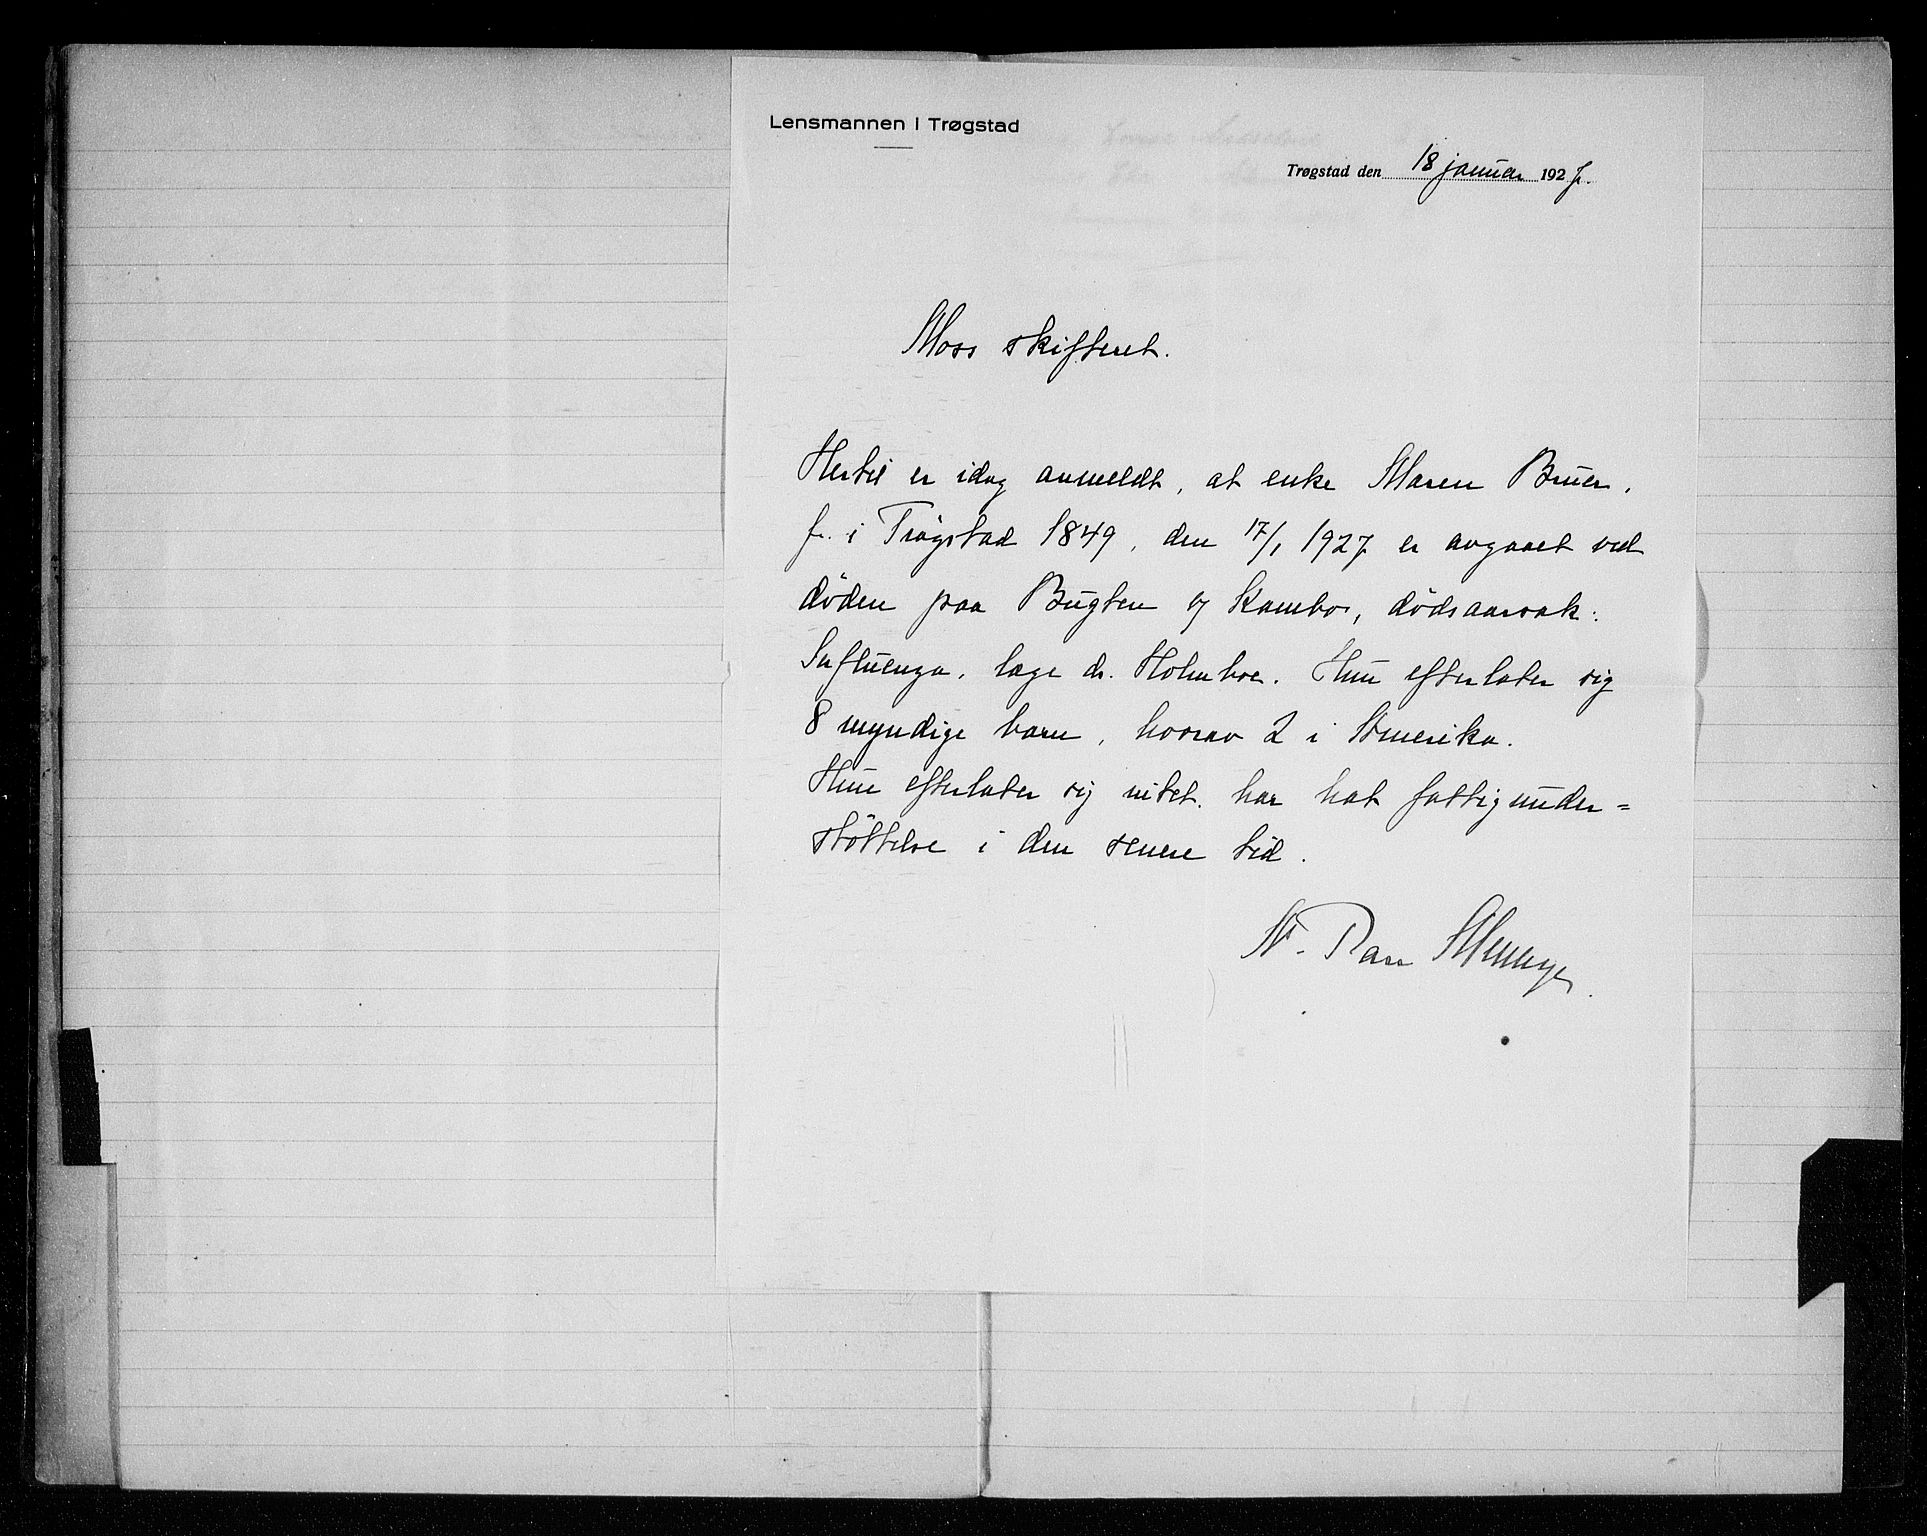 Lensmannen i Trøgstad
Trøgstad den 18 januar 1927.
Moss skifteret.
Hertil er idag anmeldt, at enke Maren Bruer,
f. i Trøgstad 1849, den 17/1 1927 er avgaaet ved
døden paa Bugten av Kambo, dødsaarsak:
Influenza, læge dr. Holmboe. Hun efterlater sig
8 myndige barn, hvorav 2 i Amerika.
Hun efterlater sig intet. har hat fattigunder=
støttelse i den senere tid.